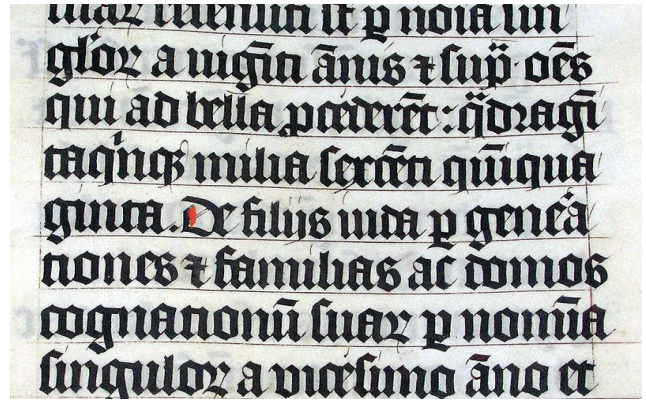 suaꝝ recensiti sūt ꝑ noīa sin
gloꝝ a uigīti ānis ⁊ sup̄· oēs
qui ad bella ꝓcederēt: q̈dragī
taq̇nqꝫ milia sexcēti quīqua
ginta. De filijs iuda ꝑ gene᷒a
tiones ⁊ familias ac domos
cognationū suaꝝ ꝑ nomīa
singuloꝝ a vicesimo āno et